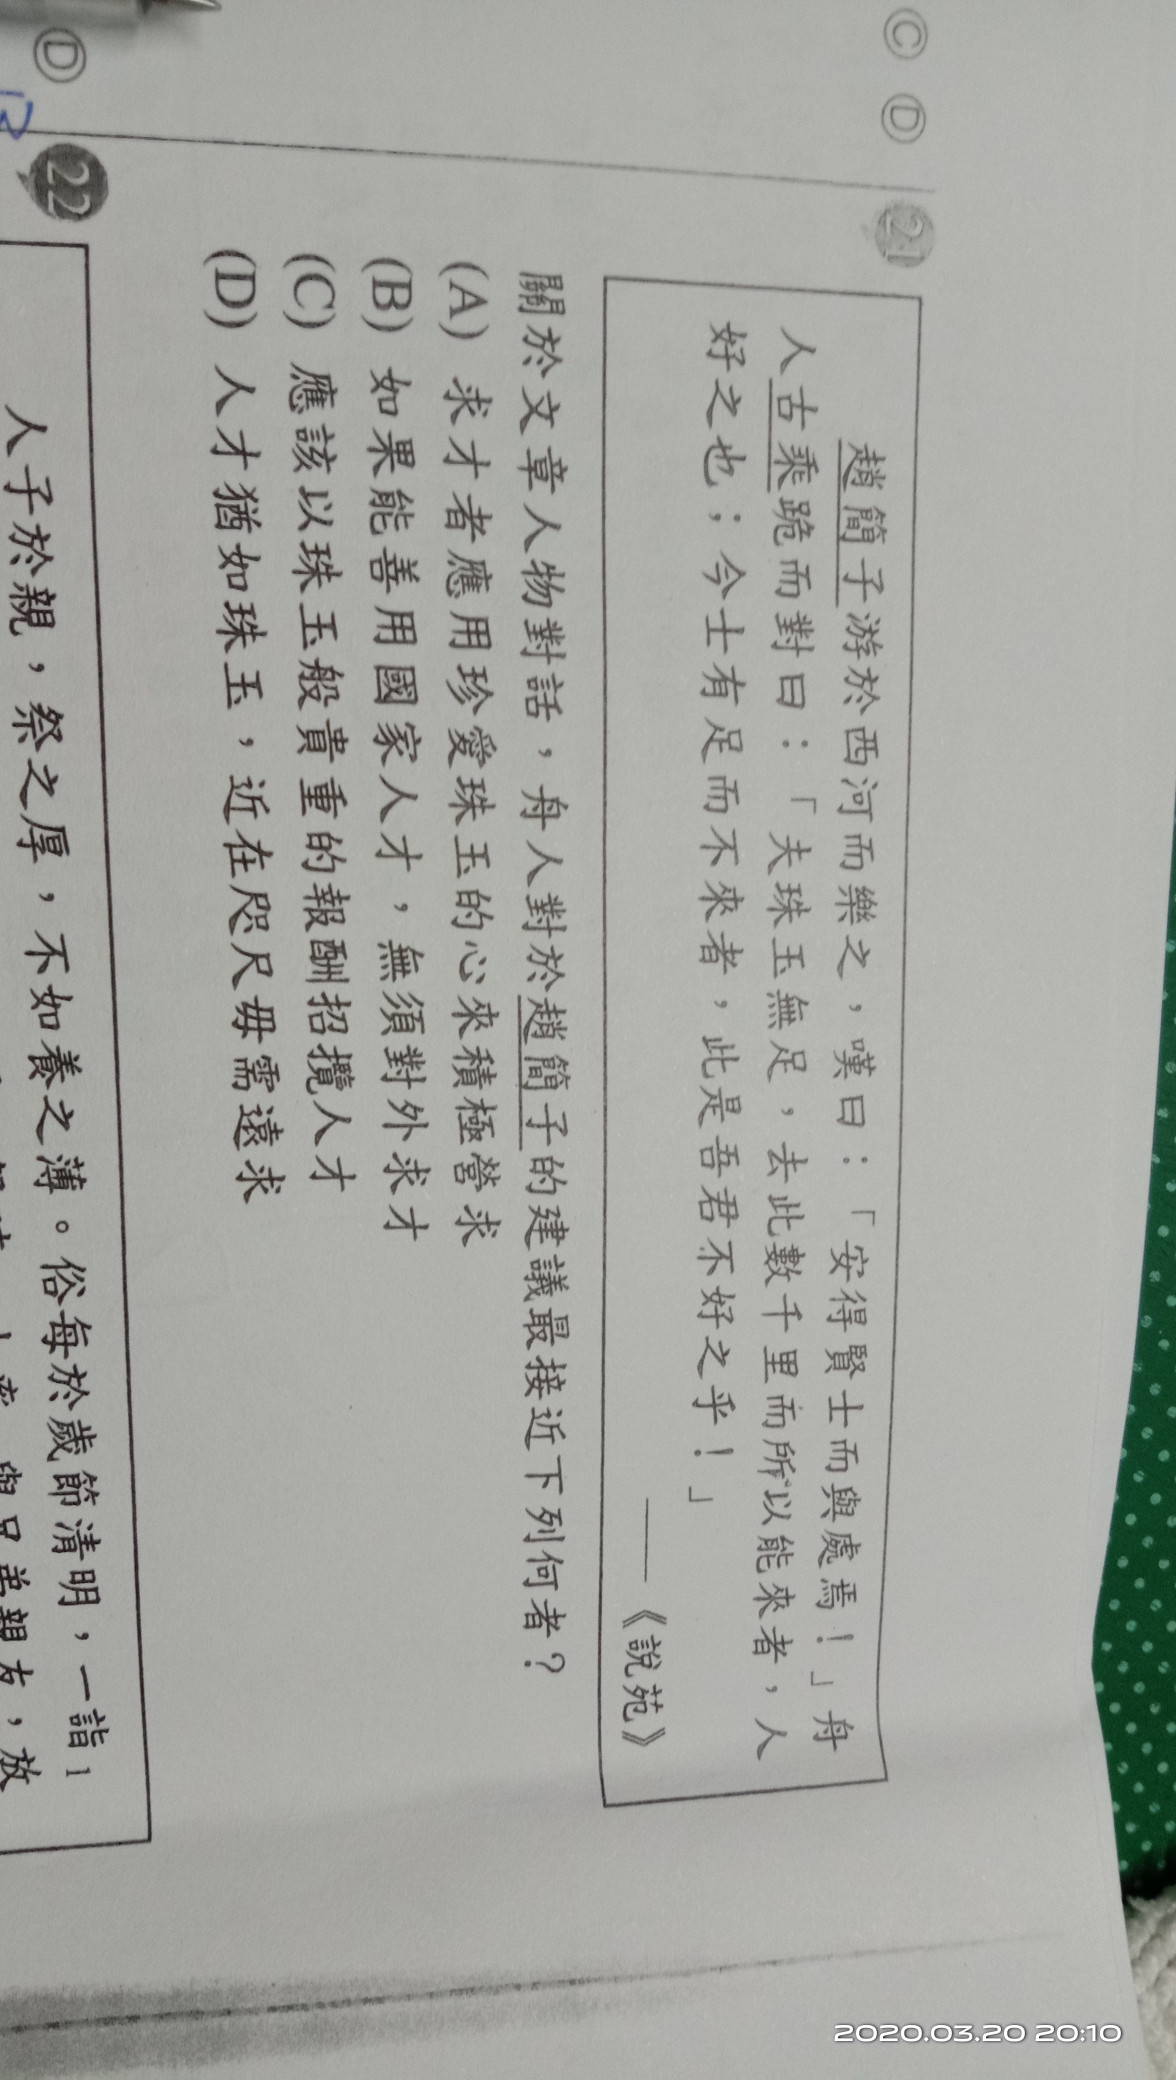 Ⓒ Ⓓ
21
趙簡子游於西河而樂之，嘆曰：「安得賢士而與處焉！」舟
人古乘跪而對曰：「夫珠玉無足，去此數千里而所以能來者，人
好之也；今士有足而不來者，此是吾君不好之乎！」
——《說苑》
關於文章人物對話，舟人對於趙簡子的建議最接近下列何者？
(A) 求才者應用珍愛珠玉的心來積極營求
(B) 如果能善用國家人才，無須對外求才
(C) 應該以珠玉般貴重的報酬招攬人才
(D) 人才猶如珠玉，近在咫尺毋需遠求
Ⓓ
22
人子於親，祭之厚，不如養之薄。俗每於歲節清明，一詣1
與兄弟親友，放
2020.03.20 20:10